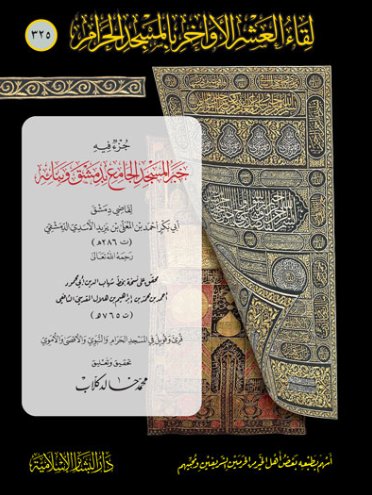 لقاء العشر الأواخر بالمسجد الحرام
٣٢٥
جزء فيه
خبر المسجد الجامع بدمشق وبنائه
لقاضي دمشق
أبي بكر أحمد بن المعلى بن يزيد الأسدي الدمشقي
(ت ٢٨٦ هـ)
رحمه الله تعالى
محقق على نسخة بخط شهاب الدين أبي محمود
أحمد بن محمد بن إبراهيم بن هلال المقدسي الشافعي
(ت ٧٦٥ هـ)
قرئ وقوبل في المسجد الحرام والنبوي والأقصى والأموي
تحقيق وتعليق
محمد خالد كلاب
أسهم بطبعه بعض أهل الخير من الحرمين الشريفين ومحبيهم
دار البشائر الإسلامية